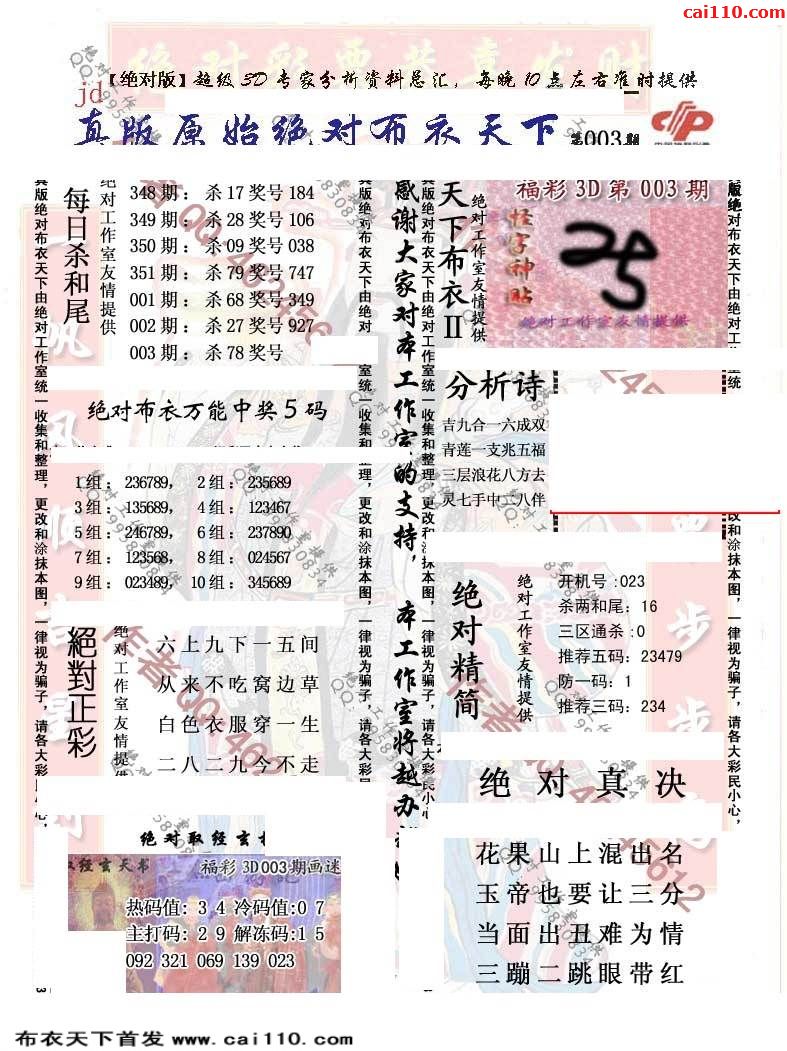 cai110.com
【绝对版】超级3D专家分析资料总汇，每晚10点左右准时提供
jd
真版原始绝对布衣天下 第003期
每日杀和尾
绝对工作室友情提供
348期：杀17奖号184
349期：杀28奖号106
350期：杀09奖号038
351期：杀79奖号747
001期：杀68奖号349
002期：杀27奖号927
003期：杀78奖号
绝对布衣万能中奖5码
1组：236789， 2组：235689
3组：135689， 4组：123467
5组：246789， 6组：237890
7组：123568， 8组：024567
9组：023489， 10组：345689
絕對正彩
绝对工作室友情提供
六上九下一五间
从来不吃窝边草
白色衣服穿一生
二八二九今不走
绝对取经玄
取经玄天书
福彩3D003期画迷
热码值：3 4 冷码值:0 7
主打码：2 9 解冻码:1 5
092 321 069 139 023
真版绝对布衣天下由绝对工作室统一收集和整理，更改和涂抹本图，一律视为骗子，请各大彩民小心，
感谢大家对本工作室的支持，本工作室将越办
天下布衣II
绝对工作室友情提供
福彩3D第003期
怪字神贴
25
绝对工作室友情提供
分析诗
吉九合一六成双
青莲一支兆五福
三层浪花八方去
灵七手中二八伴
绝对精简
绝对工作室友情提供
开机号:023
杀两和尾：16
三区通杀:0
推荐五码：23479
防一码：1
推荐三码：234
绝对真决
花果山上混出名
玉帝也要让三分
当面出丑难为情
三蹦二跳眼带红
布衣天下首发 www.cai110.com